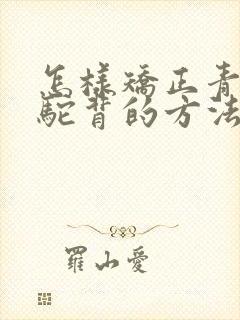 怎樣矯正青
駝背的方法
羅山愛